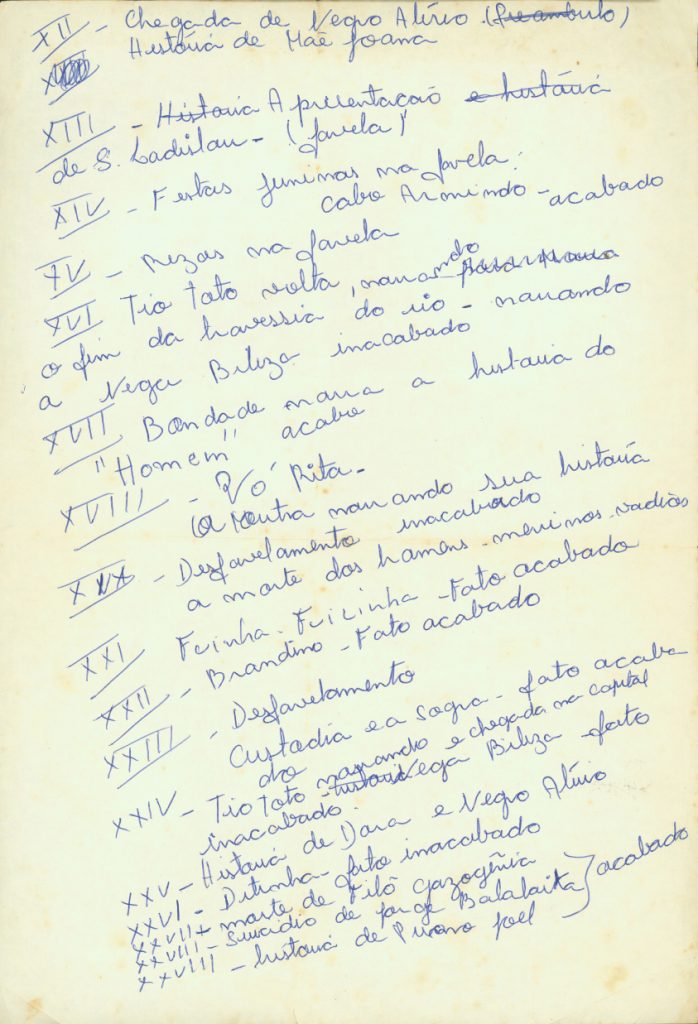 XII - Chegada de Negro Alírio (preambulo)
História de Mãe Joana
XIII - Historia Apresentação e história
de S. Ladislau - (favela)
XIV - Festas juninas na favela:
cabo Armindo - acabado
XV - rezas na favela
XVI Tio Tato volta, narrando
o fim da travessia do rio - narrando
a Nega Biliza inacabado
XVII Bondade narra a historia do
"Homem" acaba
XVIII - Vó Rita -
(A Outra narrando sua história
XIX - Desfavelamento inacabado
a morte dos homens-meninos-vadios
XXI Fuinha. Fuizinha - Fato acabado
XXII - Brandino - Fato acabado
XXIII - Desfavelamento
Custodia e a sogra - fato acaba
do
XXIV - Tio Toto narrando e chegada na capital
historia Nega Biliza - fato
inacabado.
XXV - História de Dora e Negro Alírio
XXVI - Ditinha - fato inacabado
XXVII - morte de Filô Gazogênia
XXVIII - Suicidio de Jorge Balalaika } acabado
XXVIII - história de Pirano Joel